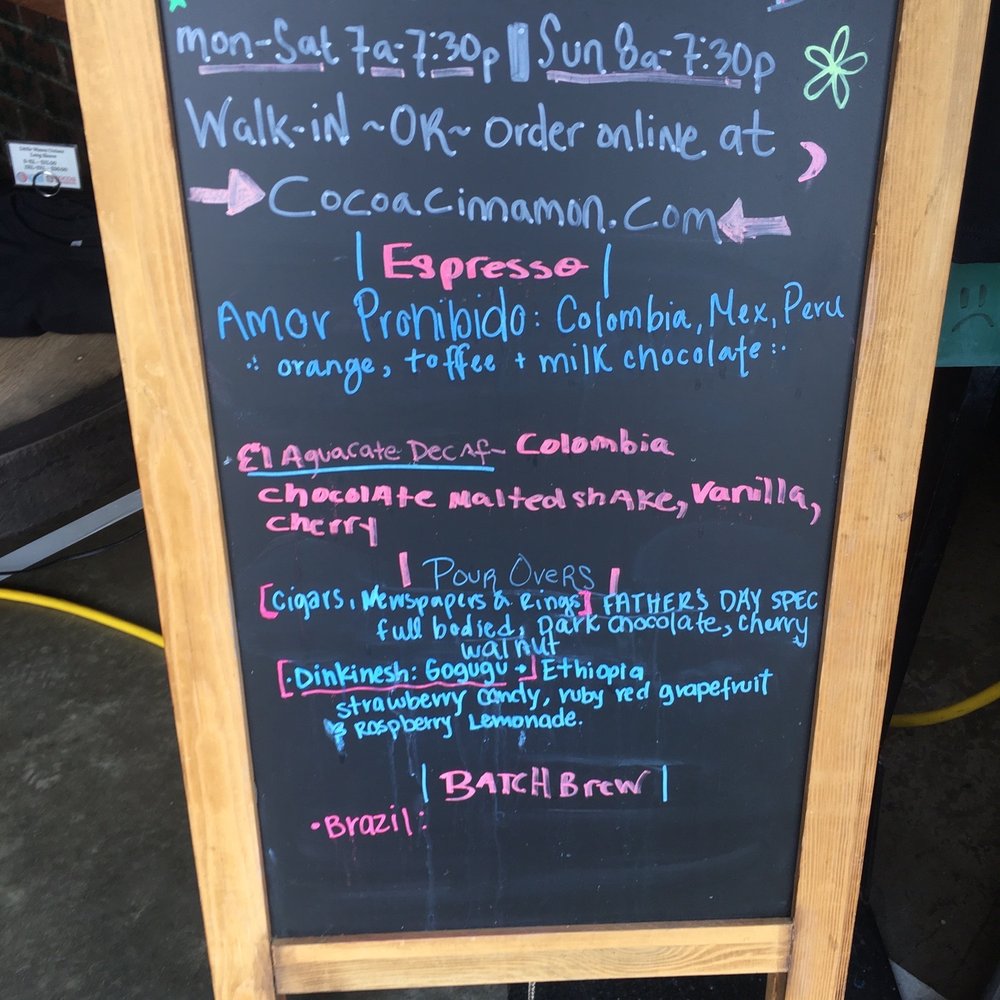 mon-Sat 7a-7:30p || Sun 8a-7:30p
Walk-iN ~OR~ Order online at
Cocoacinnamon.com
| Espresso |
Amor Prohibido: Colombia, Mex, Peru
orange, toffee + milk chocolate
El Aguacate Decaf~ Colombia
chocolAte MaltedshAke, Vanilla,
cherry
| Pour Overs |
[Cigars, Newspapers & Rings] FATHER'S DAY SPEC
full bodied, Dark chocolate, cherry
walnut
[·Dinkinesh: Gogugu →] Ethiopia
strawberry candy, ruby red grapefruit
& Raspberry Lemonade.
| BATCH Brew |
·Brazil: